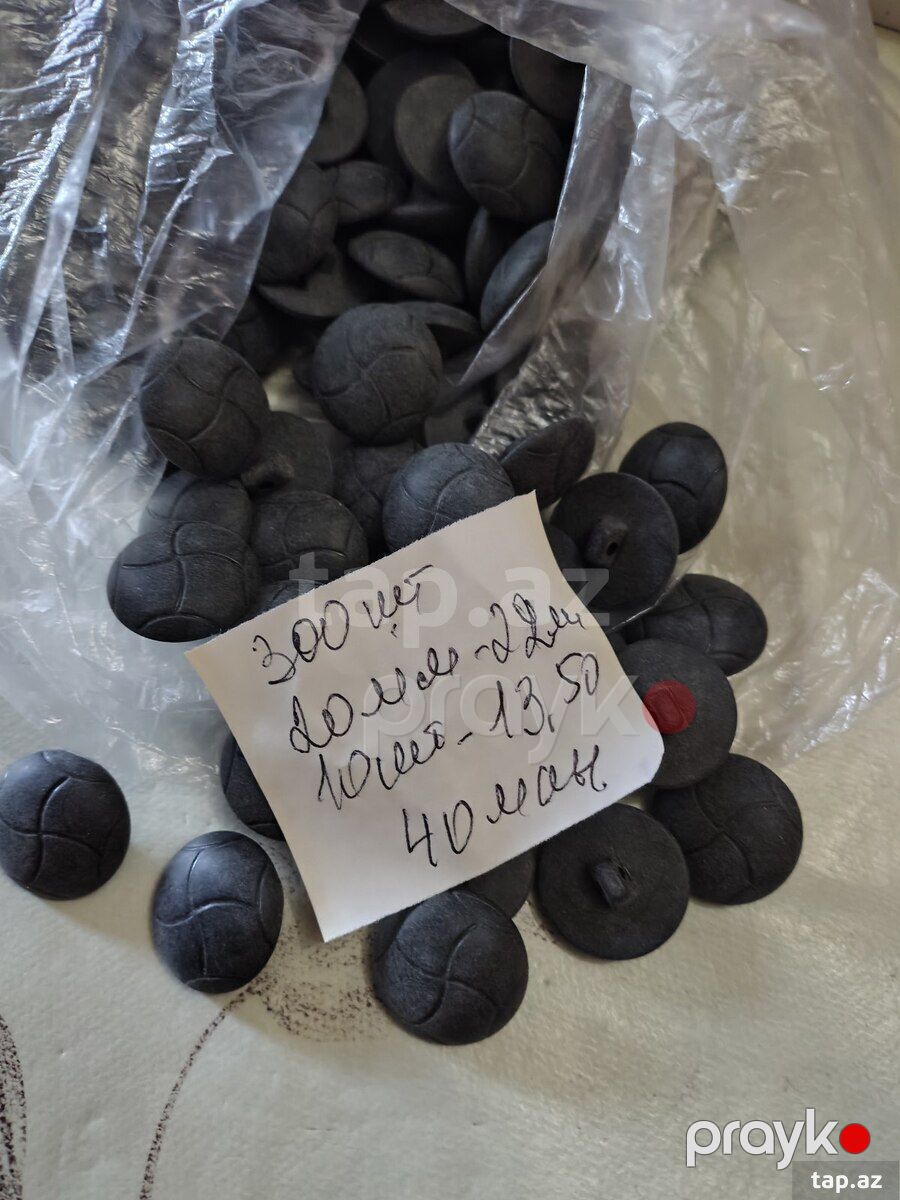 300 шт
20 мм - 22 м
10 шт - 13,50
40 ман
tap.az
prayko
prayk
tap.az